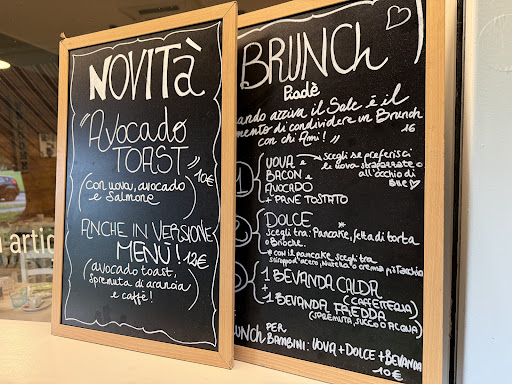 NOVITà
"AVOCADO
TOAST" 10€
(con uova, avocado
e Salmone)
ANCHE IN VERSIONE
MENÙ! 12€
(avocado toast,
spremuta di arancia
e caffè!)
BRUNCH
Piadè
uando arriva il Sole è il
mento di condividere un Brunch
con chi Ami! " 16
UOVA e
BACON e
AVOCADO
+ PANE TOSTATO
scegli se preferisci
le uova strapazzate o
all'occhio di
Bue
DOLCE *
scegli tra: Pancake, fetta di torta
o Brioche.
* con il pancake scegli tra
sciroppo d'acero, Nutella o crema pistacchio
1 BEVANDA CALDA
(CAFFETTERIA)
+
1 BEVANDA FREDDA
(SPREMUTA, SUCCO O ACQUA)
UNCH PER
BAMBINI: UOVA + DOLCE + BEVANDA
10€
artig